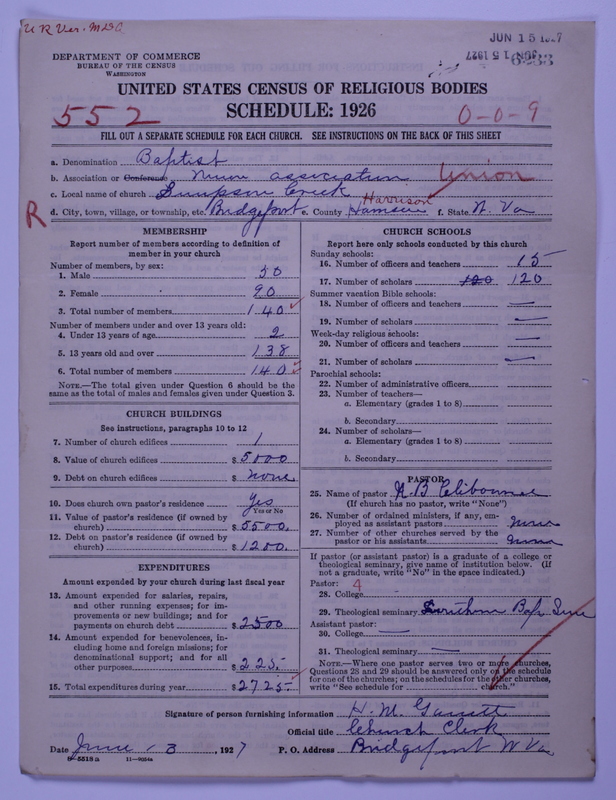 JUN 15 1927
JUN 15 1927
DEPARTMENT OF COMMERCE
BUREAU OF THE CENSUS
WASHINGTON
UNITED STATES CENSUS OF RELIGIOUS BODIES
SCHEDULE: 1926
552
0-0-9
FILL OUT A SEPARATE SCHEDULE FOR EACH CHURCH. SEE INSTRUCTIONS ON THE BACK OF THIS SHEET
a. Denomination Baptist
b. Association or Conference Union association Union
c. Local name of church Simpson Creek
Harrison
R
d. City, town, village, or township, etc. Bridgeport e. County Harrison f. State W. Va
MEMBERSHIP
Report number of members according to definition of member in your church
Number of members by sex:
1. Male 50
2. Female 90
3. Total number of members 140
Number of members under and over 13 years old:
4. Under 13 years of age 2
5. 13 years old and over 138
6. Total number of members 140
NOTE.—The total given under Question 6 should be the
same as the total of males and females given under Question 3.
CHURCH BUILDINGS
See instructions, paragraphs 10 to 12
7. Number of church edifices 1
8. Value of church edifices $ 5000
9. Debt on church edifices $ none
10. Does church own pastor's residence Yes
Yes or No
11. Value of pastor's residence (if owned by
church) $ 5500.
12. Debt on pastor's residence (if owned by
church) $ 1200.
EXPENDITURES
Amount expended by your church during last fiscal year
13. Amount expended for salaries, repairs,
and other running expenses; for im-
provements or new buildings; and for
payments on church debt $ 2500
14. Amount expended for benevolences, in-
cluding home and foreign missions; for
denominational support; and for all
other purposes $ 225.-
15. Total expenditures during year $ 2725.-
CHURCH SCHOOLS
Report here only schools conducted by this church
Sunday schools:
16. Number of officers and teachers 15
17. Number of scholars 120 120
Summer vacation Bible schools:
18. Number of officers and teachers —
19. Number of scholars —
Week-day religious schools:
20. Number of officers and teachers —
21. Number of scholars —
Parochial schools:
22. Number of administrative officers
23. Number of teachers—
a. Elementary (grades 1 to 8)
b. Secondary
24. Number of scholars—
a. Elementary (grades 1 to 8)
b. Secondary
PASTOR
25. Name of pastor
(If church has no pastor, write "None")
26. Number of ordained ministers, if any, em-
ployed as assistant pastors none
27. Number of other churches served by the
pastor or his assistants none
If pastor (or assistant pastor) is a graduate of a college or
theological seminary, give name of institution below. (If
not a graduate, write "No" in the space indicated.)
Pastor: 4
28. College
29. Theological seminary Southern Bap Sem
Assistant pastor:
30. College —
31. Theological seminary —
NOTE.—Where one pastor serves two or more churches,
Questions 28 and 29 should be answered only on the schedule
for one of the churches; on the schedules for the other churches,
write "See schedule for church."
Signature of person furnishing information H. M. Garrett
Official title Church Clerk
Date June 13, 1927 P. O. Address Bridgeport W Va
8-5518a 11—9054a